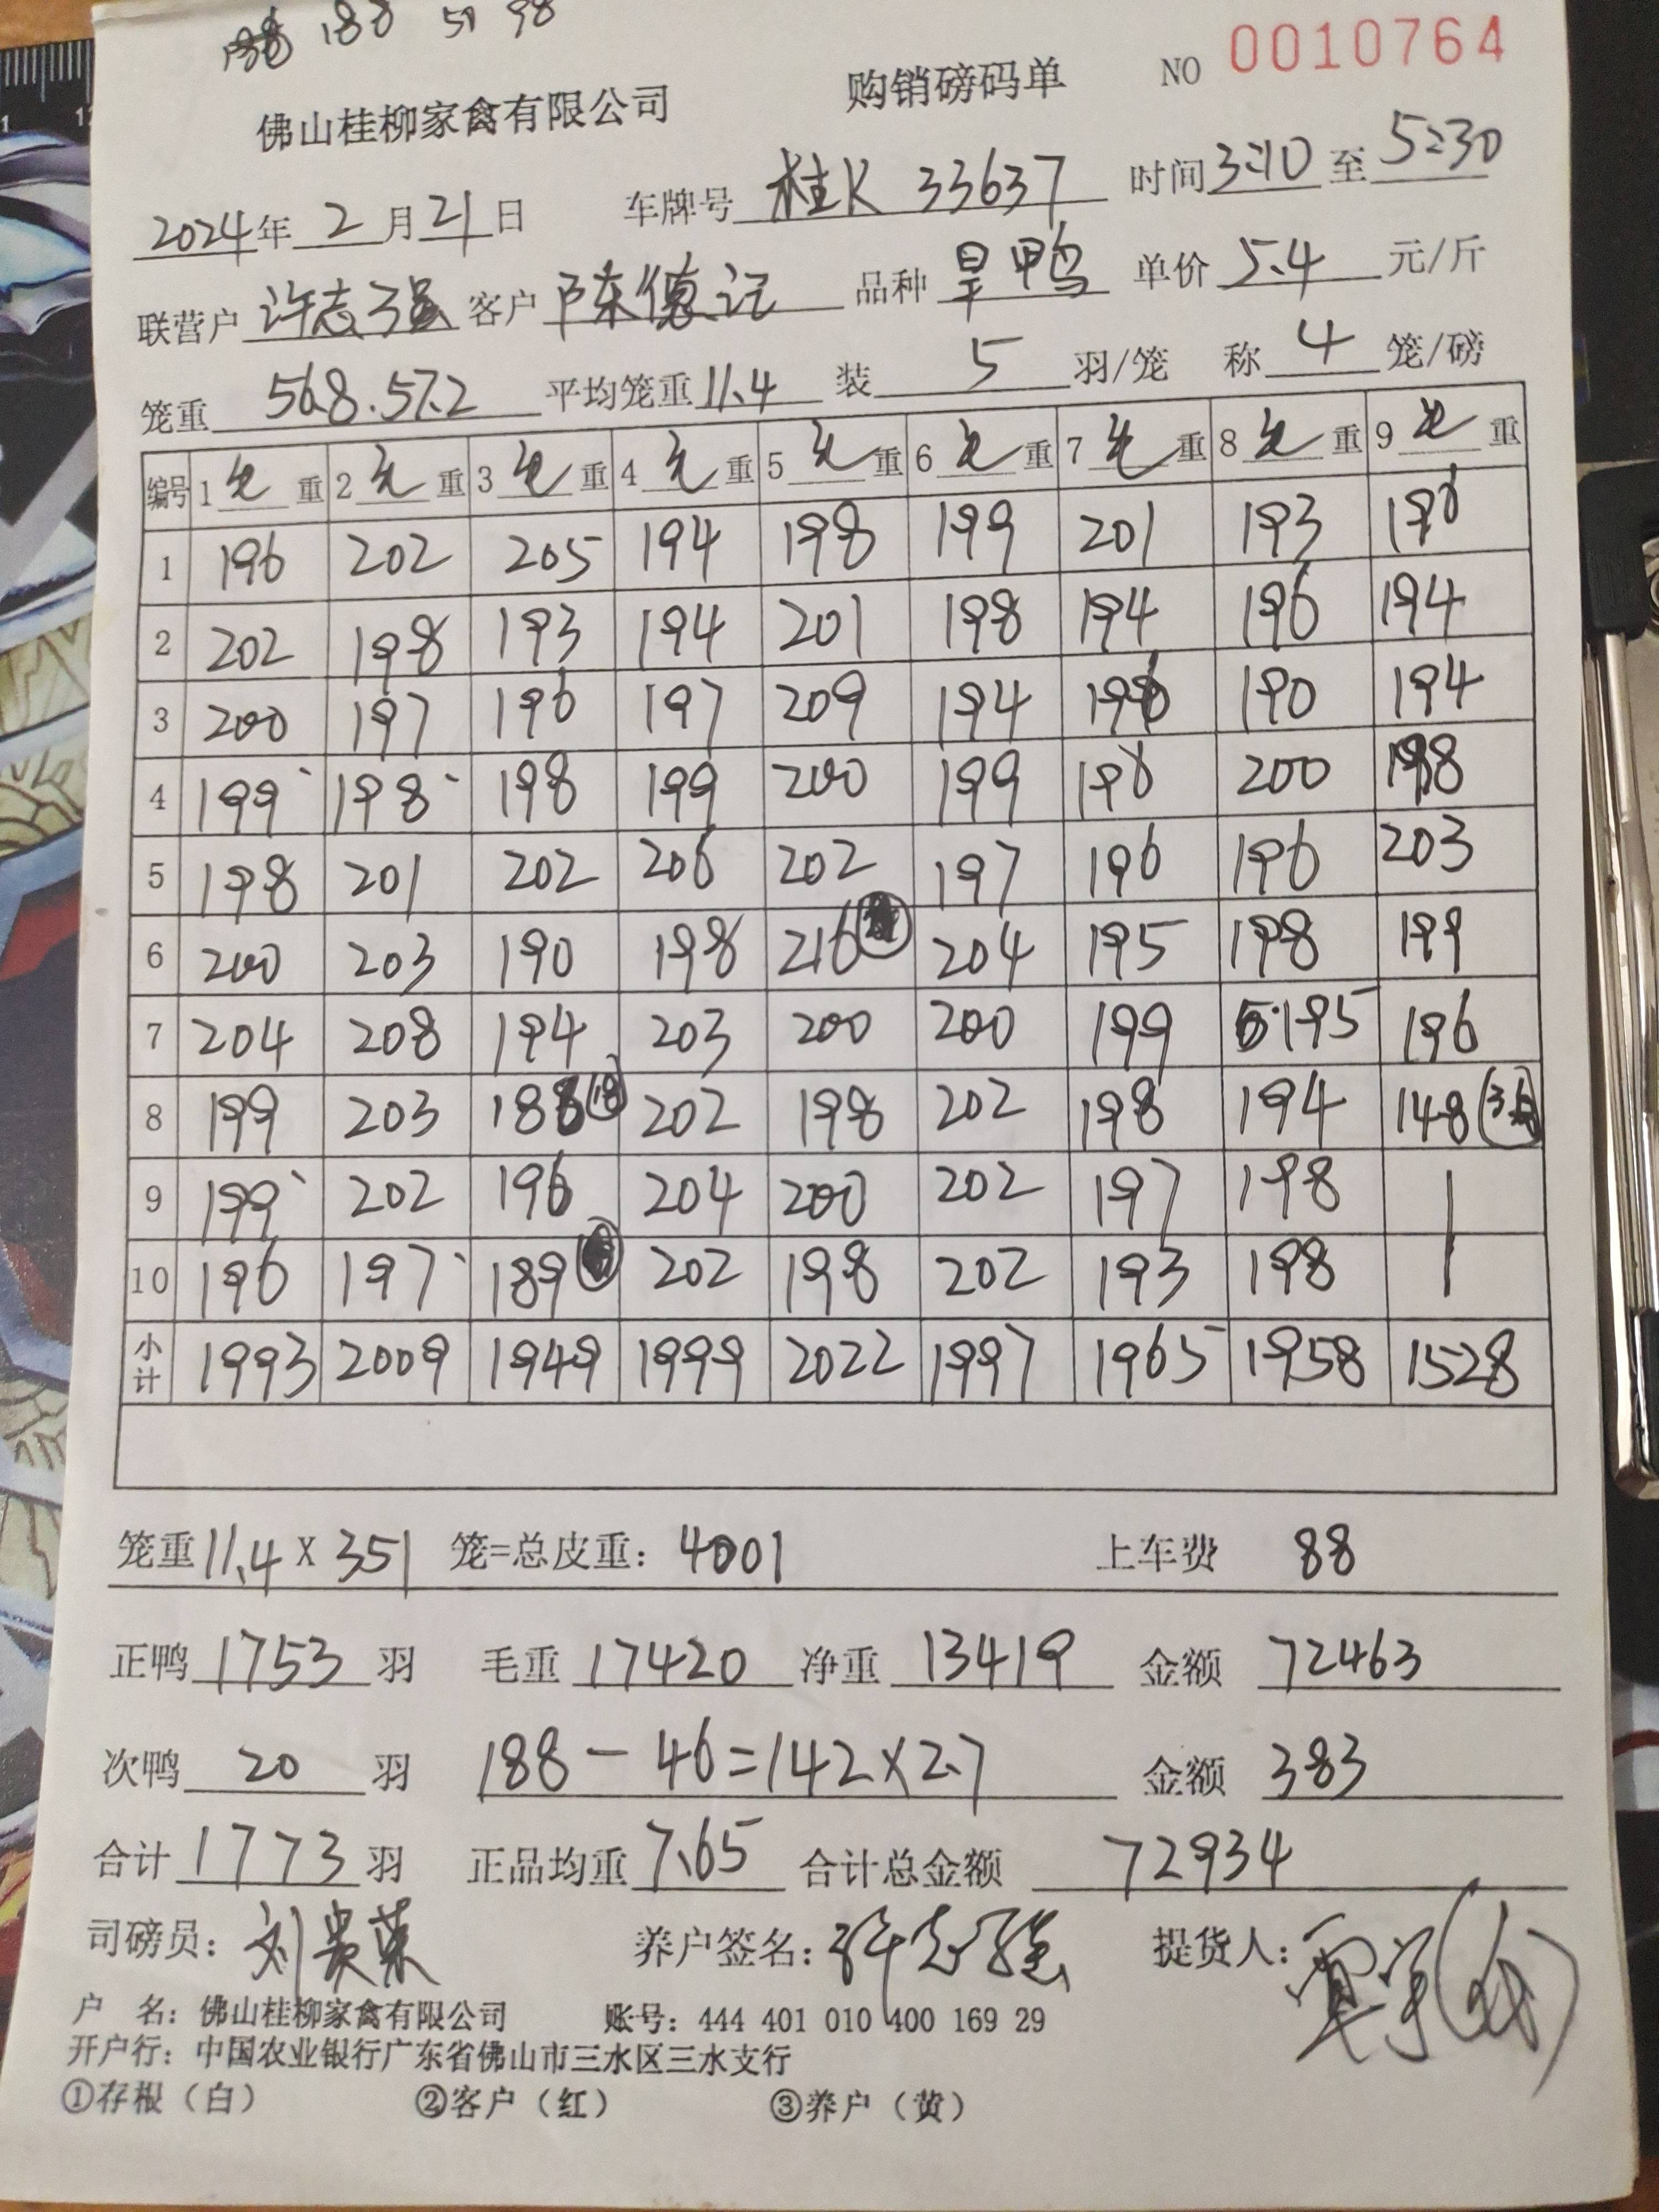 188 51 98
佛山桂柳家禽有限公司 购销磅码单 NO 0010764
2024年 2 月 21 日 车牌号 桂K 33637 时间 3:10 至 5:30
联营户 许志强 客户 陈德记 品种 旱鸭 单价 5.4 元/斤
笼重 56.8.57.2 平均笼重 11.4 装 5 羽/笼 称 4 笼/磅
编号 1 毛 重 2 毛 重 3 毛 重 4 毛 重 5 毛 重 6 毛 重 7 毛 重 8 毛 重 9 毛 重
1 196 202 205 194 198 199 201 193 198
2 202 198 193 194 201 198 194 196 194
3 200 197 196 197 209 194 190 194
4 199 198 198 199 200 199 198 200 198
5 198 201 202 206 202 197 196 196 203
6 200 203 190 198 216 204 195 198 199
7 204 208 194 203 200 200 199 195 196
8 199 203 188 202 198 202 198 194 148
9 199 202 196 204 200 202 197 198
10 196 197 189 202 198 202 193 198
小计 1993 2009 1949 1999 2022 1997 1965 1958 1528
笼重 11.4 X 351 笼=总皮重: 4001 上车费 88
正鸭 1753 羽 毛重 17420 净重 13419 金额 72463
次鸭 20 羽 188 - 46=142×2.7 金额 383
合计 1773 羽 正品均重 7.65 合计总金额 72934
司磅员: 养户签名: 许志强 提货人:
户 名: 佛山桂柳家禽有限公司 账号: 444 401 010 400 169 29
开户行: 中国农业银行广东省佛山市三水区三水支行
①存根（白） ②客户（红） ③养户（黄）